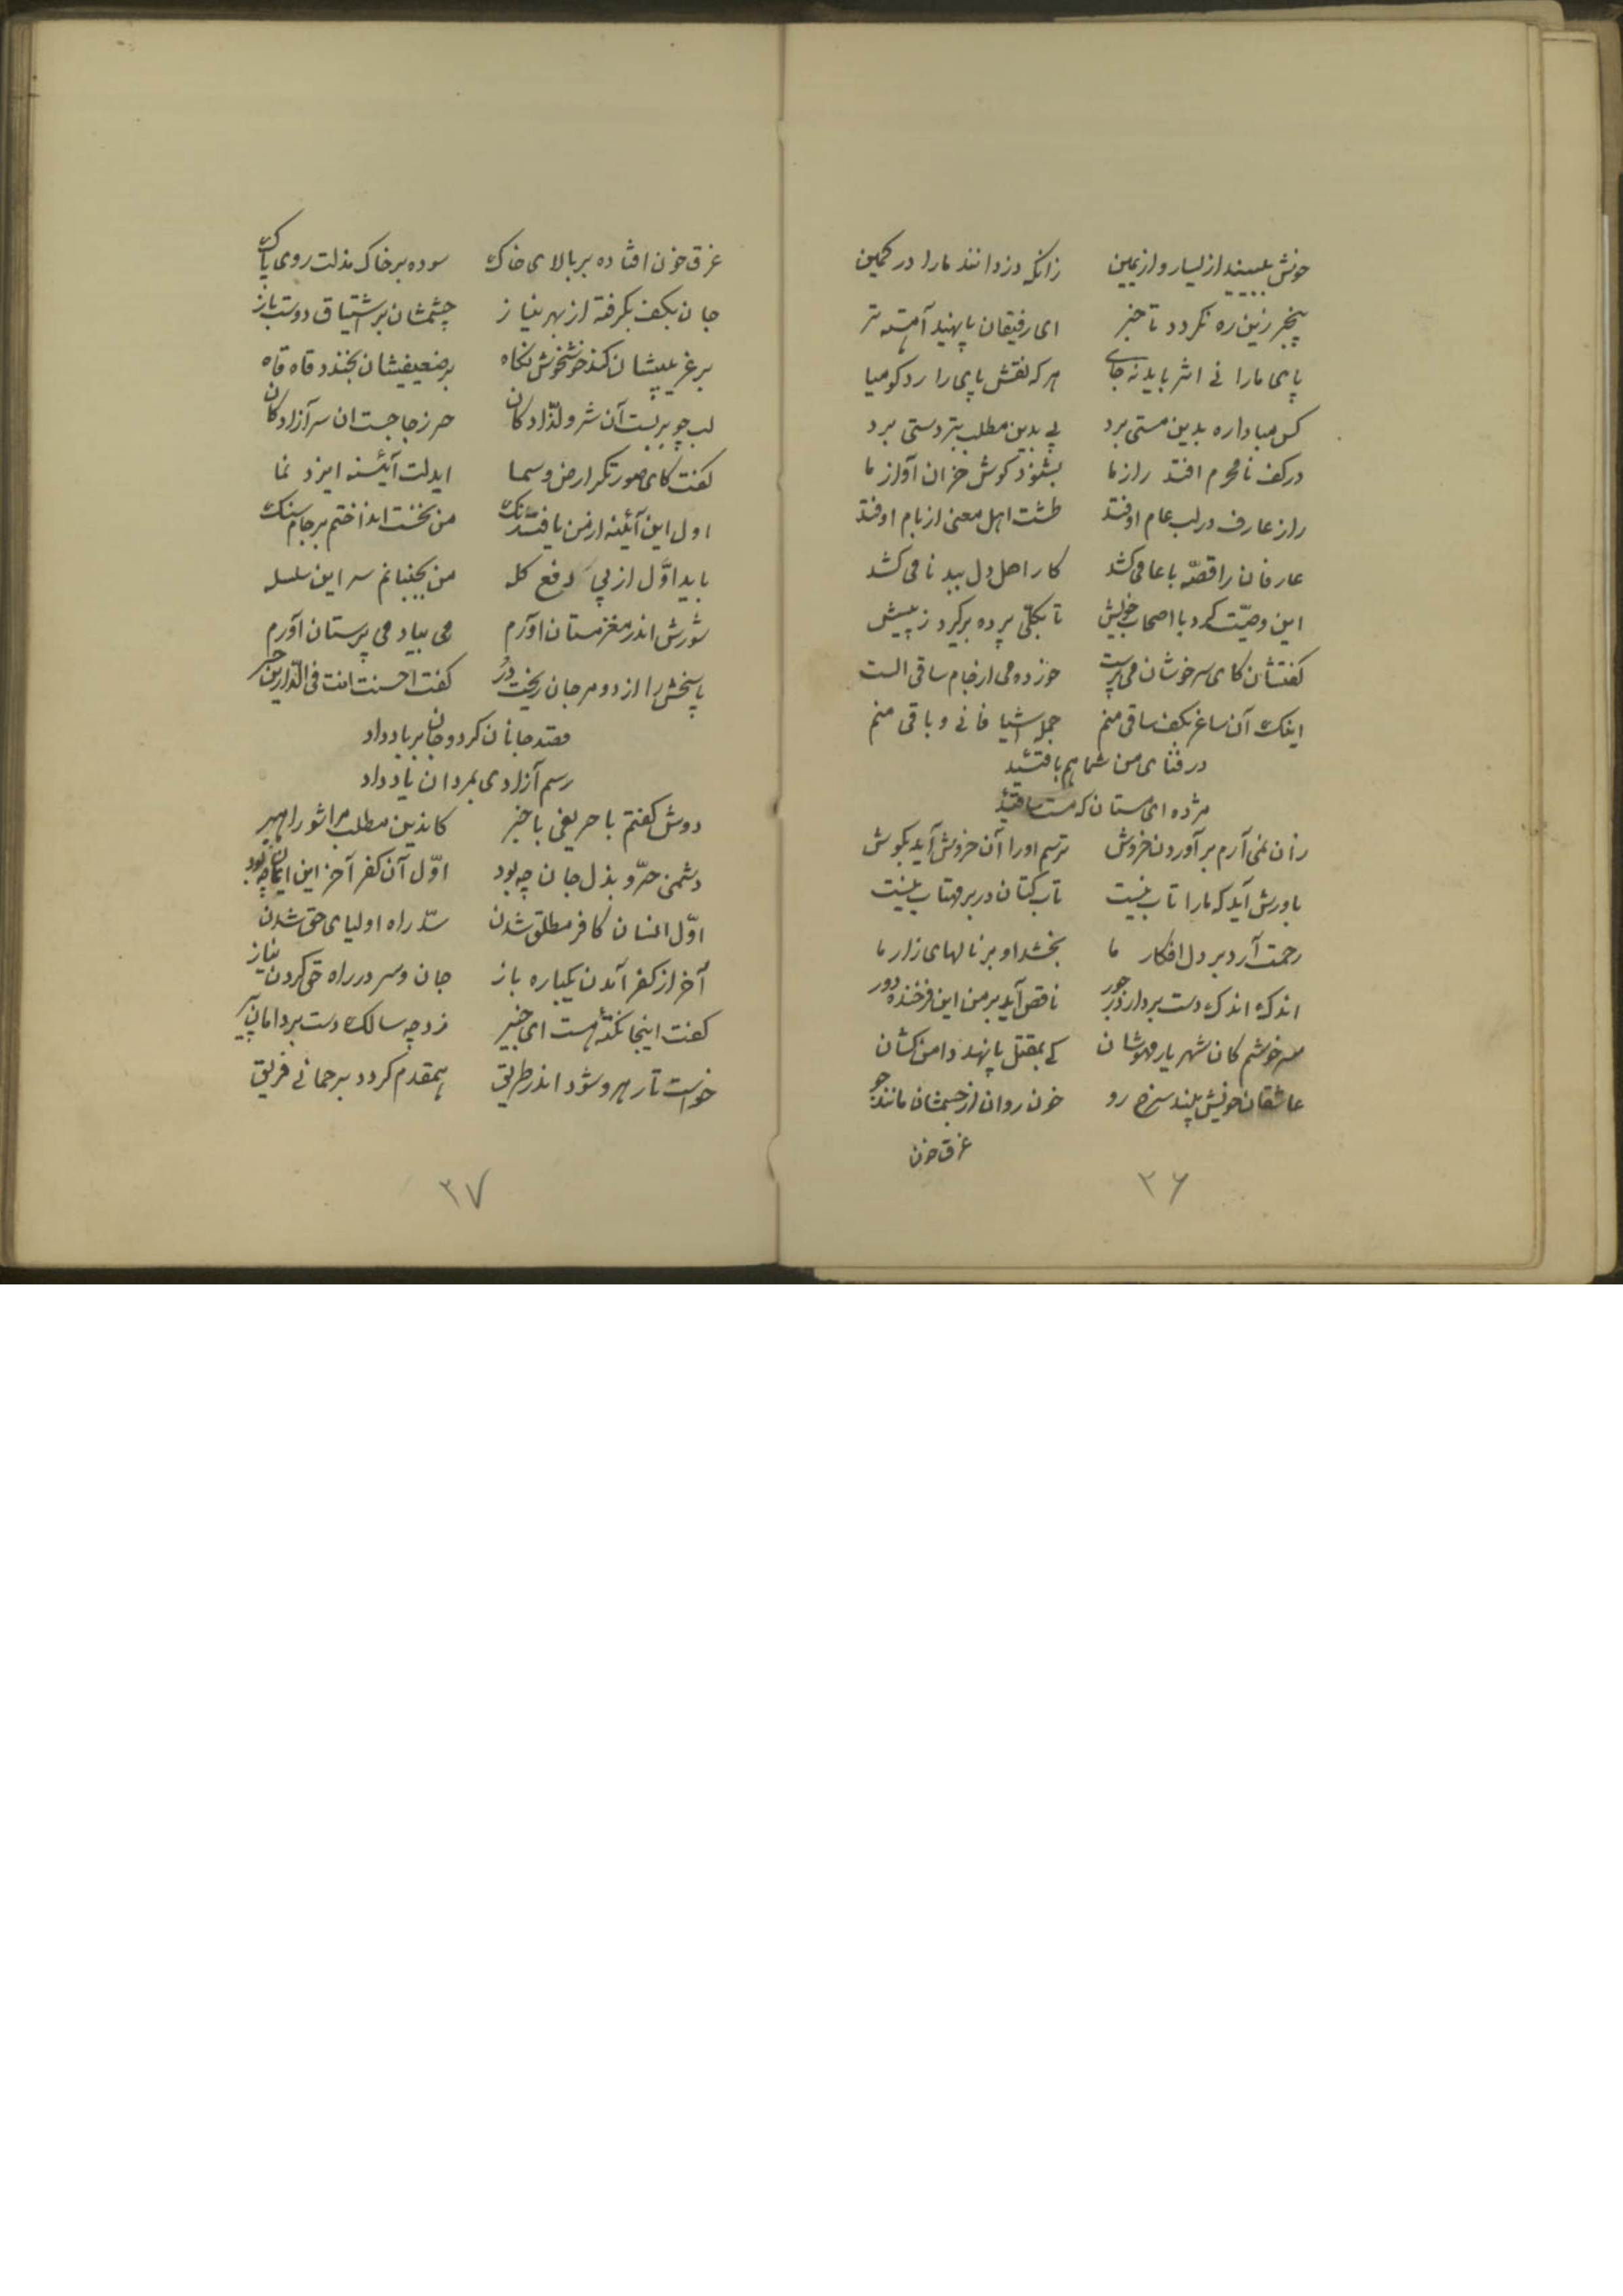 خوش ببینید از یسار و از یمین    زانکه دزدانند ما را در کمین
بیخبر زین ره نگردد تا خبر    ای رفیقان پا نهید آهسته تر
پای ما را نی اثر باید نه جای    هر که نقش پای را رد گو میا
کس مبادا ره بدین مستی برد    پی بدین مطلب بتردستی برد
در کف نامحرم افتد راز ما    بشنود گوش خران آواز ما
راز عارف در لب عام اوفتد    طشت اهل معنی از بام اوفتد
عارفان را قصه با عامی کشد    کار اهل دل ببدنامی کشد
این وصیّت کرد با اصحاب خویش    تا بکلّی پرده برگیرد ز پیش
گفتشان کای سرخوشان می پرست    خورده می از جام ساقی الست
اینک آن ساغر بکف ساقی منم    جمله اشیا فانی و باقی منم
در فنای من شما هم باقیید
مژده ای مستان که مست ساقیید
زان نمی آرم بر آوردن خروش    ترسم او را آن خروش آید بگوش
باورش آید که ما را تاب نیست    تاب کتان در بر مهتاب نیست
رحمت آرد بر دل افکار ما    بخشد او بر نالهای زار ما
اندک اندک دست بردارد ز جور    ناقص آید بر من این فرخنده دور
سرخوشم کان شهریار مهوشان    کی بمقتل پا نهد دامن کشان
عاشقان خویش بیند سرخ رو    خون روان از چشمشان مانند جو
غرق خون
۳۶
غرق خون افتاده بر بالای خاک    سوده بر خاک مذلت روی پاک
جان بکف بگرفته از بهر نیاز    چشمشان بر اشتیاق دوست باز
بر غریبیشان کند خوش خوش نگاه    بر ضعیفیشان بخندد قاه قاه
لب چو بربست آن شه دلدادگان    حر ز جا جست ان سر آزادگان
گفت کای صورتگر ارض و سما    ایدلت آئینه ایزد نما
اول این آئینه از من یافت زنگ    من نخست انداختم بر جام سنگ
باید اوّل از پی دفع گله    من بجنبانم سر این سلسله
شورش اندر مغز مستان آورم    می بیاد می پرستان آورم
پاسخش را از دو مرجان ریخت درُ    گفت احسنت انت فی الدّارین حر
قصد جانان کرد و جان بر باد داد
رسم آزادی بمردان یاد داد
دوش گفتم با حریفی با خبر    کاندین مطلب مرا شو راهبر
دشمنی حرّ و بذل جان چه بود    اوّل آن کفر آخر این ایمان چه بود
اوّل انسان کافر مطلق شدن    سدّ راه اولیای حق شدن
آخر از کفر آمدن یکباره باز    جان و سر در راه حق کردن نیاز
گفت اینجا نکتهٔ هست ای خبیر    زد چه سالک دست بر دامان پیر
خواست تا رهرو شود اندر طریق    همقدم گردد برحمانی فریق
۳۷